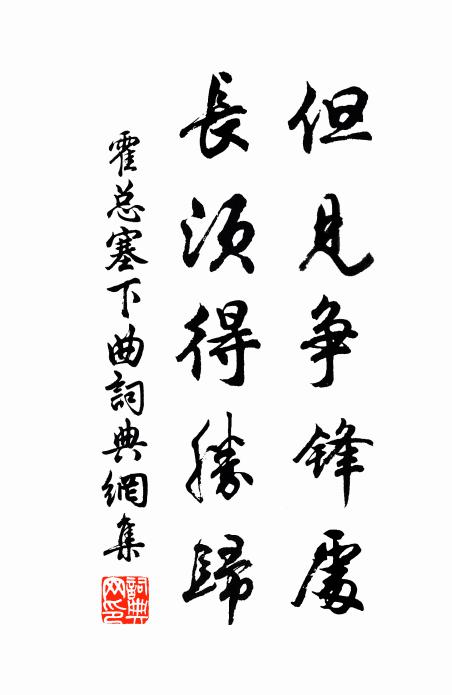 但見争鋒處
長須得勝歸
霍总塞下曲詞典網集
詞典网印